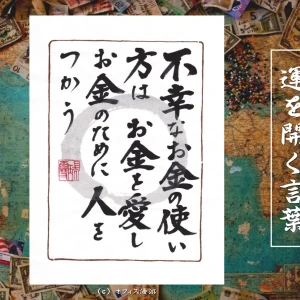 不幸なお金の使い
方は お金を愛し
お金のために 人を
つかう
運を開く言葉